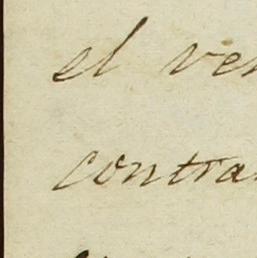 el ven
contra